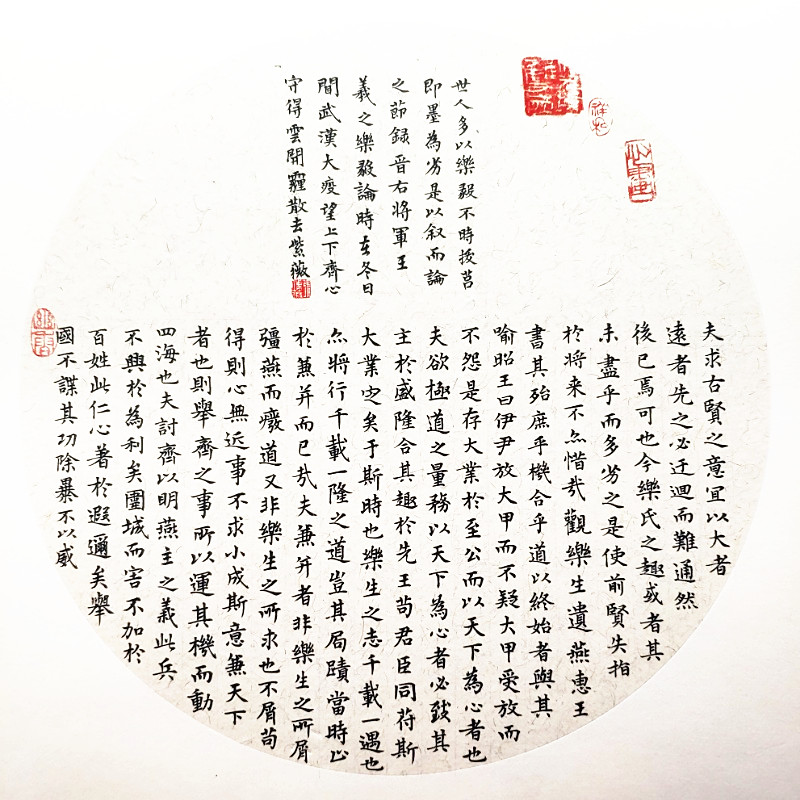 世人多以樂毅不時拔莒
即墨為劣是以叙而論
之節録晉右將軍王
羲之樂毅論時在冬日
間武漢大疫望上下齊心
守得雲開霾散去紫薇
夫求古賢之意宜以大者
遠者先之必迂迴而難通然
後已焉可也今樂氏之趣或者其
未盡乎而多劣之是使前賢失指
於将来不亦惜哉觀樂生遺燕惠王
書其殆庶乎機合乎道以終始者與其
喻昭王曰伊尹放大甲而不疑大甲受放而
不怨是存大業於至公而以天下為心者也
夫欲極道之量務以天下為心者必致其
主於盛隆合其趣於先王苟君臣同苻斯
大業定矣于斯時也樂生之志千載一遇也
亦將行千載一隆之道豈其局蹟當時止
於兼并而已哉夫兼并者非樂生之所屑
彊燕而癈道又非樂生之所求也不屑苟
得則心無近事不求小成斯意兼天下
者也則舉齊之事所以運其機而動
四海也夫討齊以明燕主之義此兵
不興於為利矣圍城而害不加於
百姓此仁心著於遐邇矣舉
國不謀其功除暴不以威